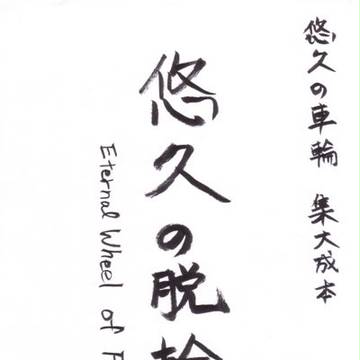 悠久の車輪 集大成本
悠久の脱輪
Eternal Wheel of